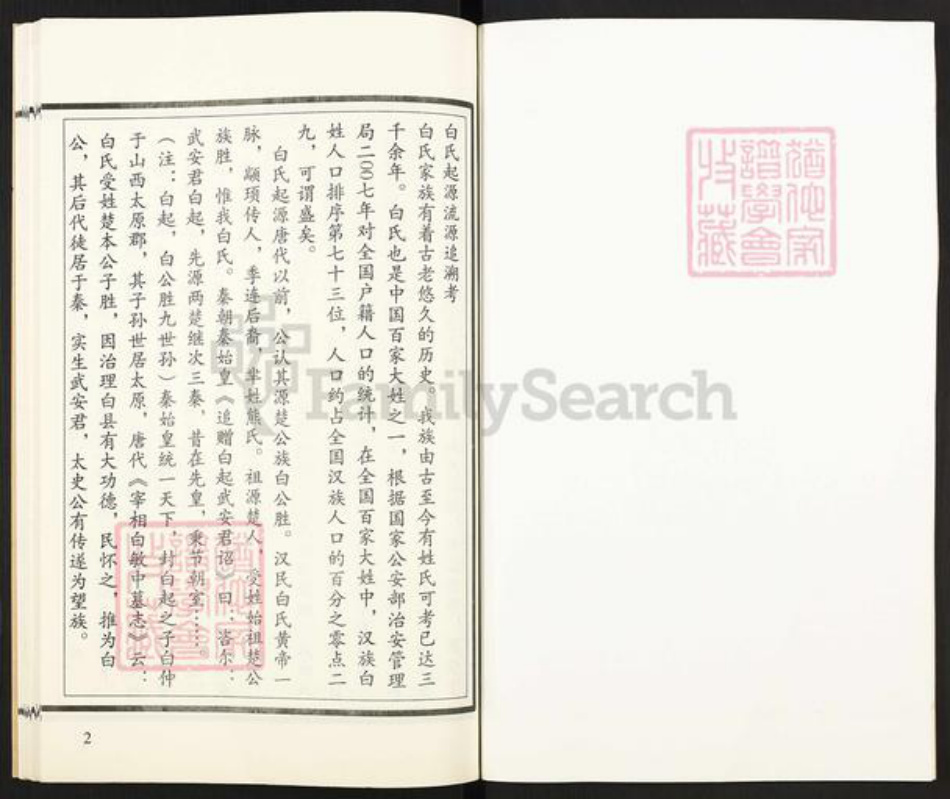 白氏起源流源追溯考
白氏家族有着古老悠久的历史。我族由古至今有姓氏可考已达三
千余年。白氏也是中国百家大姓之一，根据国家公安部治安管理
局二00七年对全国户籍人口的统计，在全国百家大姓中，汉族白
姓人口排序第七十三位，人口约占全国汉族人口的百分之零点二
九，可谓盛矣。
白氏起源唐代以前，公认其源楚公族白公胜。汉民白氏黄帝一
脉，颛顼传人，季连后裔，芈姓熊氏。祖源楚人，受姓始祖楚公
族胜，惟我白氏。秦朝秦始皇《追赠白起武安君诏》曰：咨尔：
武安君白起，先源两楚继次三秦，昔在先皇，秉节朝室……。
（注：白起，白公胜九世孙）秦始皇统一天下，封白起之子白仲
于山西太原郡，其子孙世居太原，唐代《宰相白敏中墓志》云：
白氏受姓楚本公子胜，因治理白县有大功德，民怀之，推为白
公，其后代徒居于秦，实生武安君，太史公有传遂为望族。
2
猶他家
譜學會
收藏
猶他家
譜學會
收藏
FamilySearch